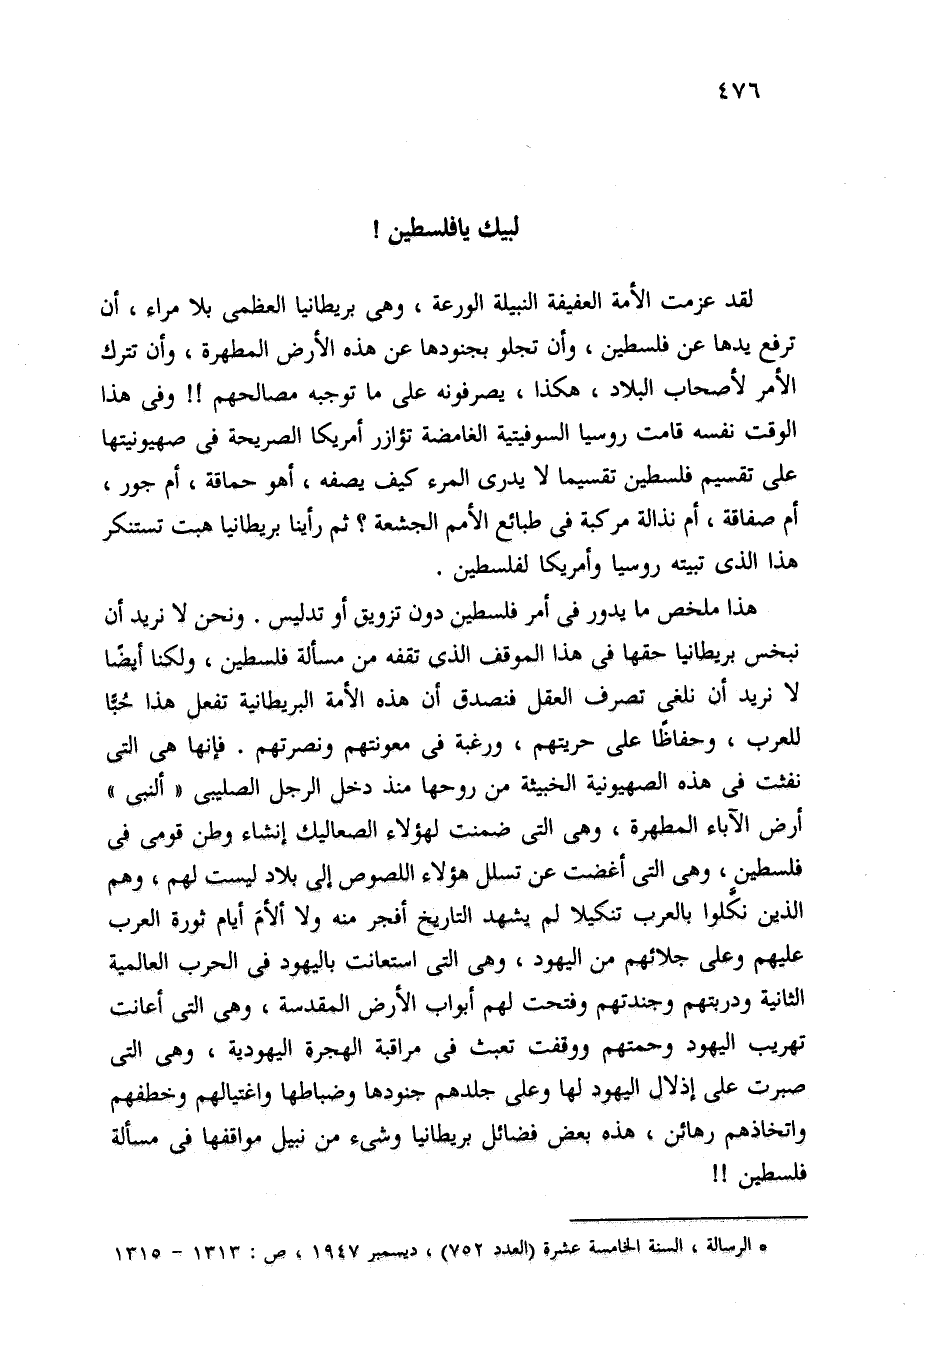 ٤٧٦
لبيك يافلسطين !
لقد عزمت الأمة العفيفة النبيلة الورعة ، وهى بريطانيا العظمى بلا مراء ، أن
ترفع يدها عن فلسطين ، وأن تجلو بجنودها عن هذه الأرض المطهرة ، وأن تترك
الأمر لأصحاب البلاد ، هكذا ، يصرفونه على ما توجبه مصالحهم !! وفى هذا
الوقت نفسه قامت روسيا السوفيتية الغامضة تؤازر أمريكا الصريحة فى صهيونيتها
على تقسيم فلسطين تقسيما لا يدرى المرء كيف يصفه ، أهو حماقة ، أم جور ،
أم صفاقة ، أم نذالة مركبة فى طبائع الأمم الجشعة ؟ ثم رأينا بريطانيا هبت تستنكر
هذا الذى تبيته روسيا وأمريكا لفلسطين .
هذا ملخص ما يدور فى أمر فلسطين دون تزويق أو تدليس . ونحن لا نريد أن
نبخس بريطانيا حقها فى هذا الموقف الذى تقفه من مسألة فلسطين ، ولكنا أيضًا
لا نريد أن نلغى تصرف العقل فنصدق أن هذه الأمة البريطانية تفعل هذا حُبًّا
للعرب ، وحفاظًا على حريتهم ، ورغبة فى معونتهم ونصرتهم . فإنها هى التى
نفثت فى هذه الصهيونية الخبيثة من روحها منذ دخل الرجل الصليبى « ألنبى »
أرض الآباء المطهرة ، وهى التى ضمنت لهؤلاء الصعاليك إنشاء وطن قومى فى
فلسطين ، وهى التى أغضت عن تسلل هؤلاء اللصوص إلى بلاد ليست لهم ، وهم
الذين نكَّلوا بالعرب تنكيلا لم يشهد التاريخ أفجر منه ولا ألأمَ أيام ثورة العرب
عليهم وعلى جلائهم من اليهود ، وهى التى استعانت باليهود فى الحرب العالمية
الثانية ودربتهم وجندتهم وفتحت لهم أبواب الأرض المقدسة ، وهى التى أعانت
تهريب اليهود وحمتهم ووقفت تعبث فى مراقبة الهجرة اليهودية ، وهى التى
صبرت على إذلال اليهود لها وعلى جلدهم جنودها وضباطها واغتيالهم وخطفهم
واتخاذهم رهائن ، هذه بعض فضائل بريطانيا وشىء من نبيل مواقفها فى مسألة
فلسطين !!
* الرسالة ، السنة الخامسة عشرة (العدد ٧٥٢) ، ديسمبر ١٩٤٧ ، ص : ١٣١٣ - ١٣١٥